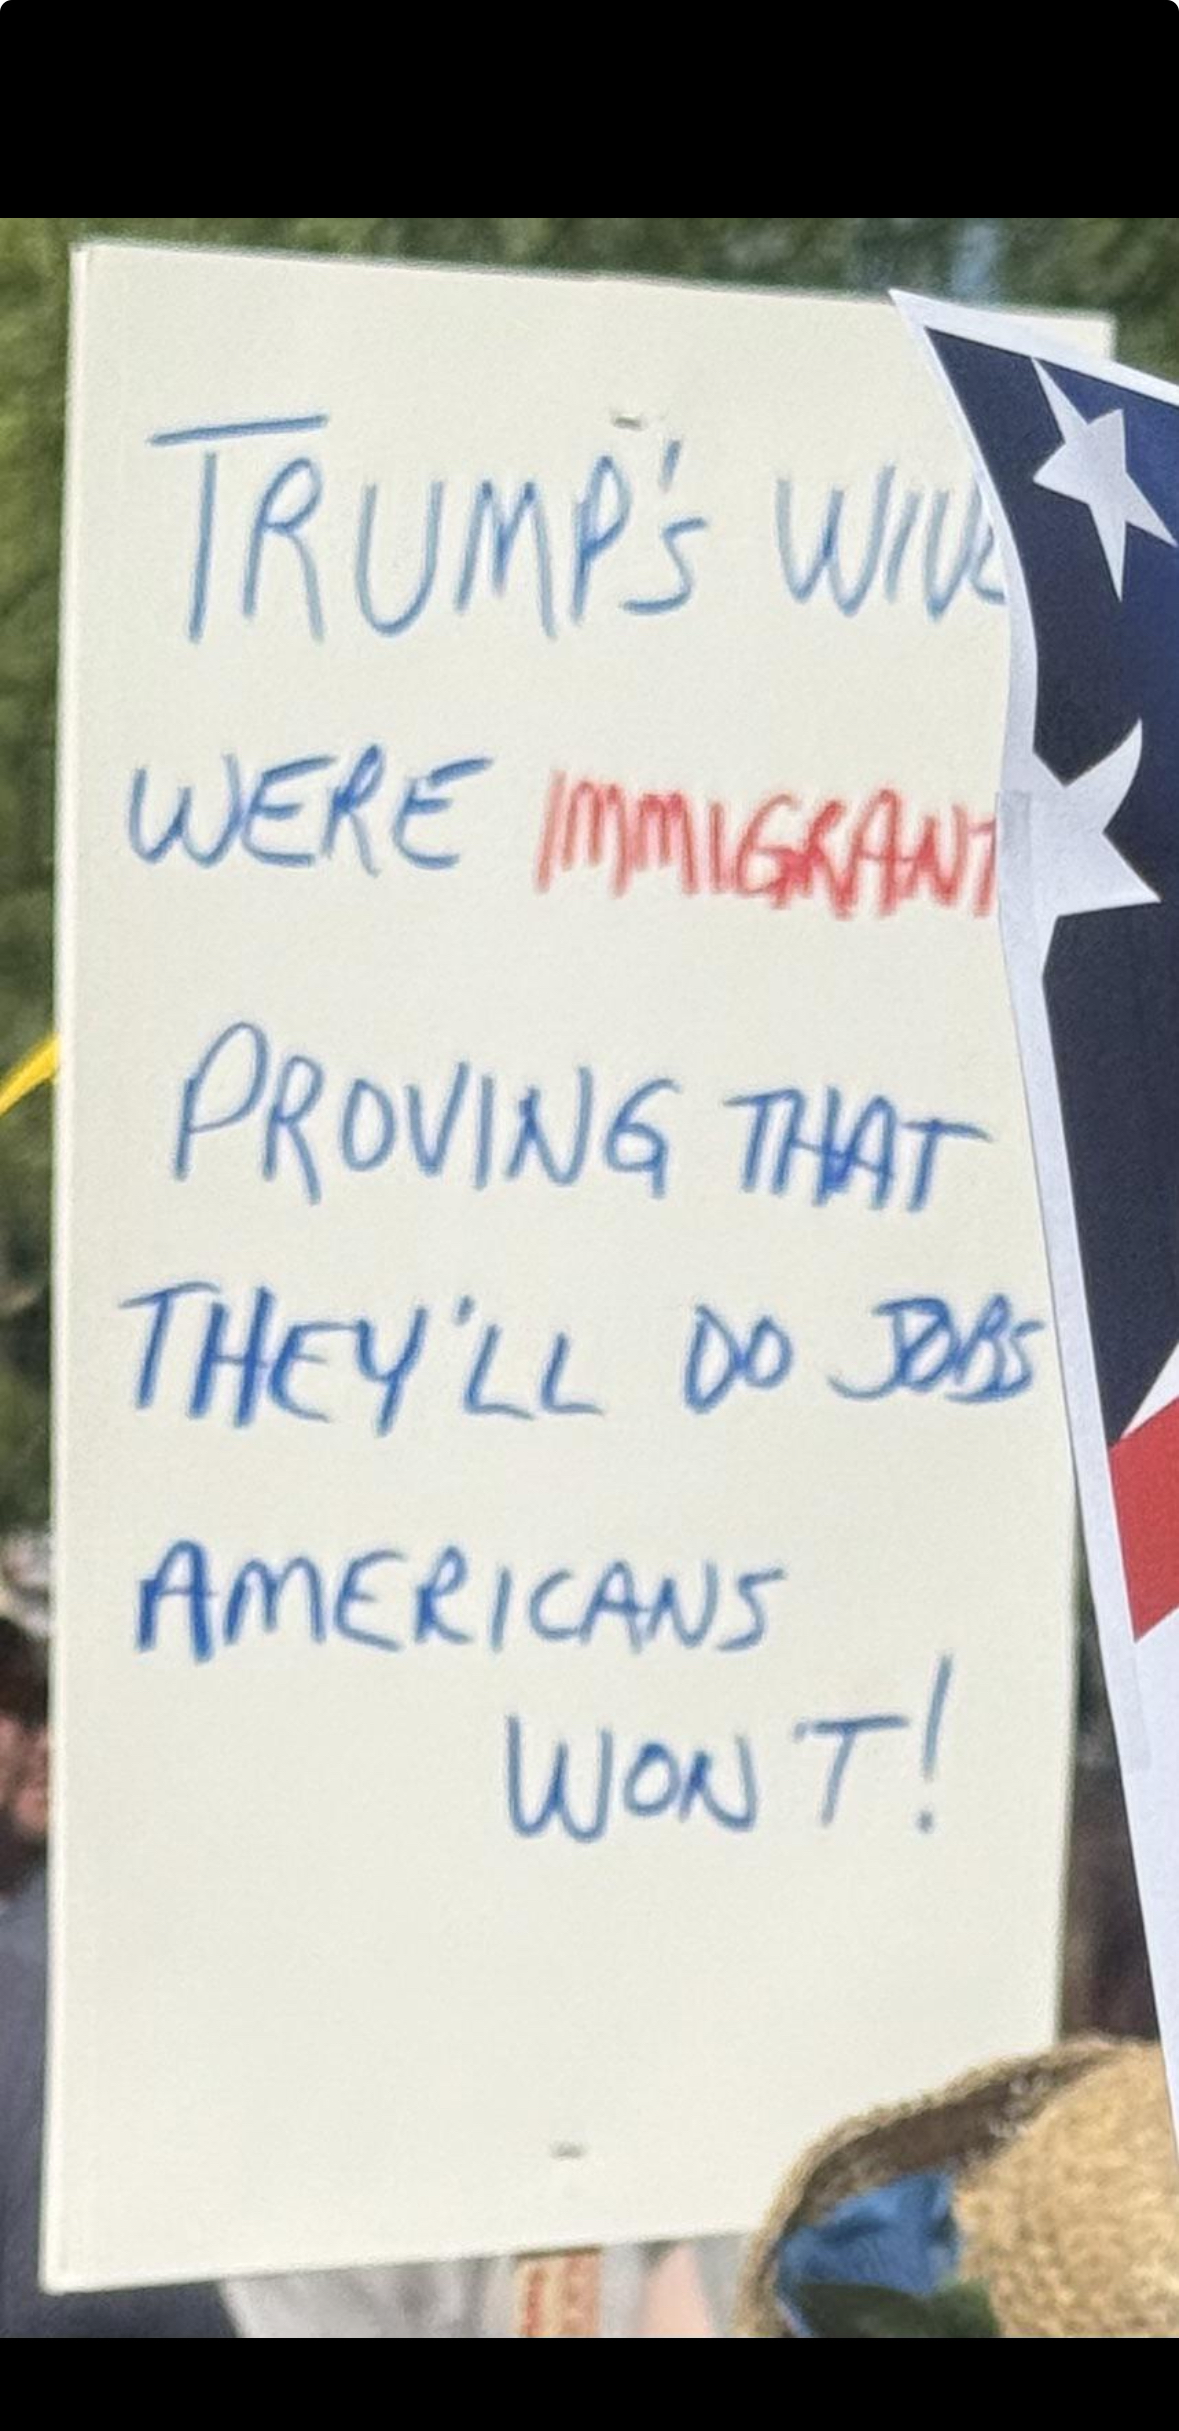 TRUMP'S WIVE
WERE IMMIGRANT
PROVING THAT
THEY'LL DO JOBS
AMERICANS
WON'T!